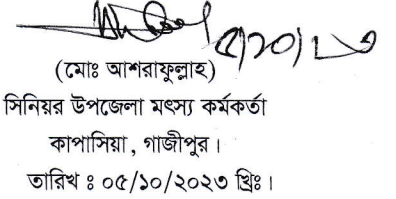 ৫/১০/২৩
(মোঃ আশরাফুল্লাহ)
সিনিয়র উপজেলা মৎস্য কর্মকর্তা
কাপাসিয়া, গাজীপুর।
তারিখ ঃ ০৫/১০/২০২৩ খ্রিঃ।